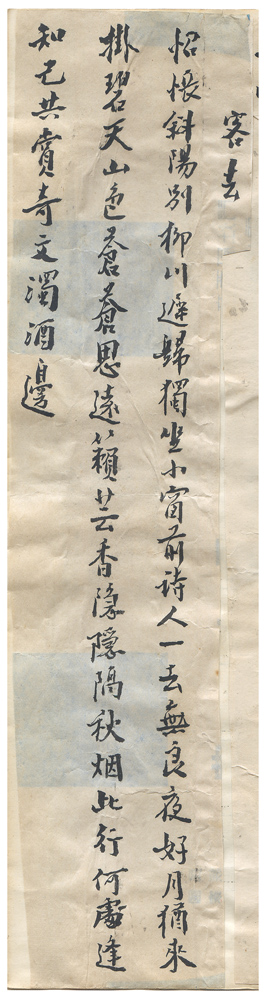 客去
怊悵斜陽別柳川遲歸獨坐小窗前詩人一去無良夜好月猶來
掛碧天山色蒼蒼思遠籟芸香隱隱隔秋烟此行何處逢
知己共賞奇文濁酒邊